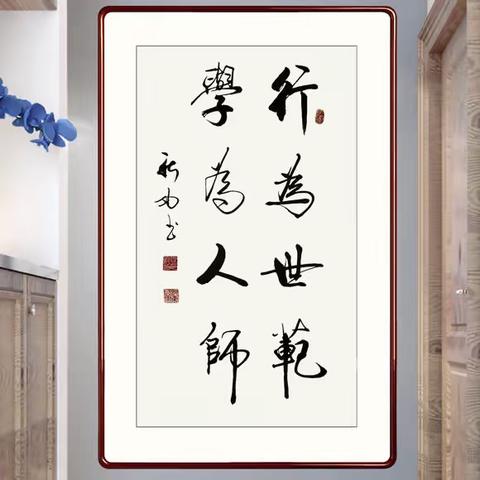 行為世範
學為人師